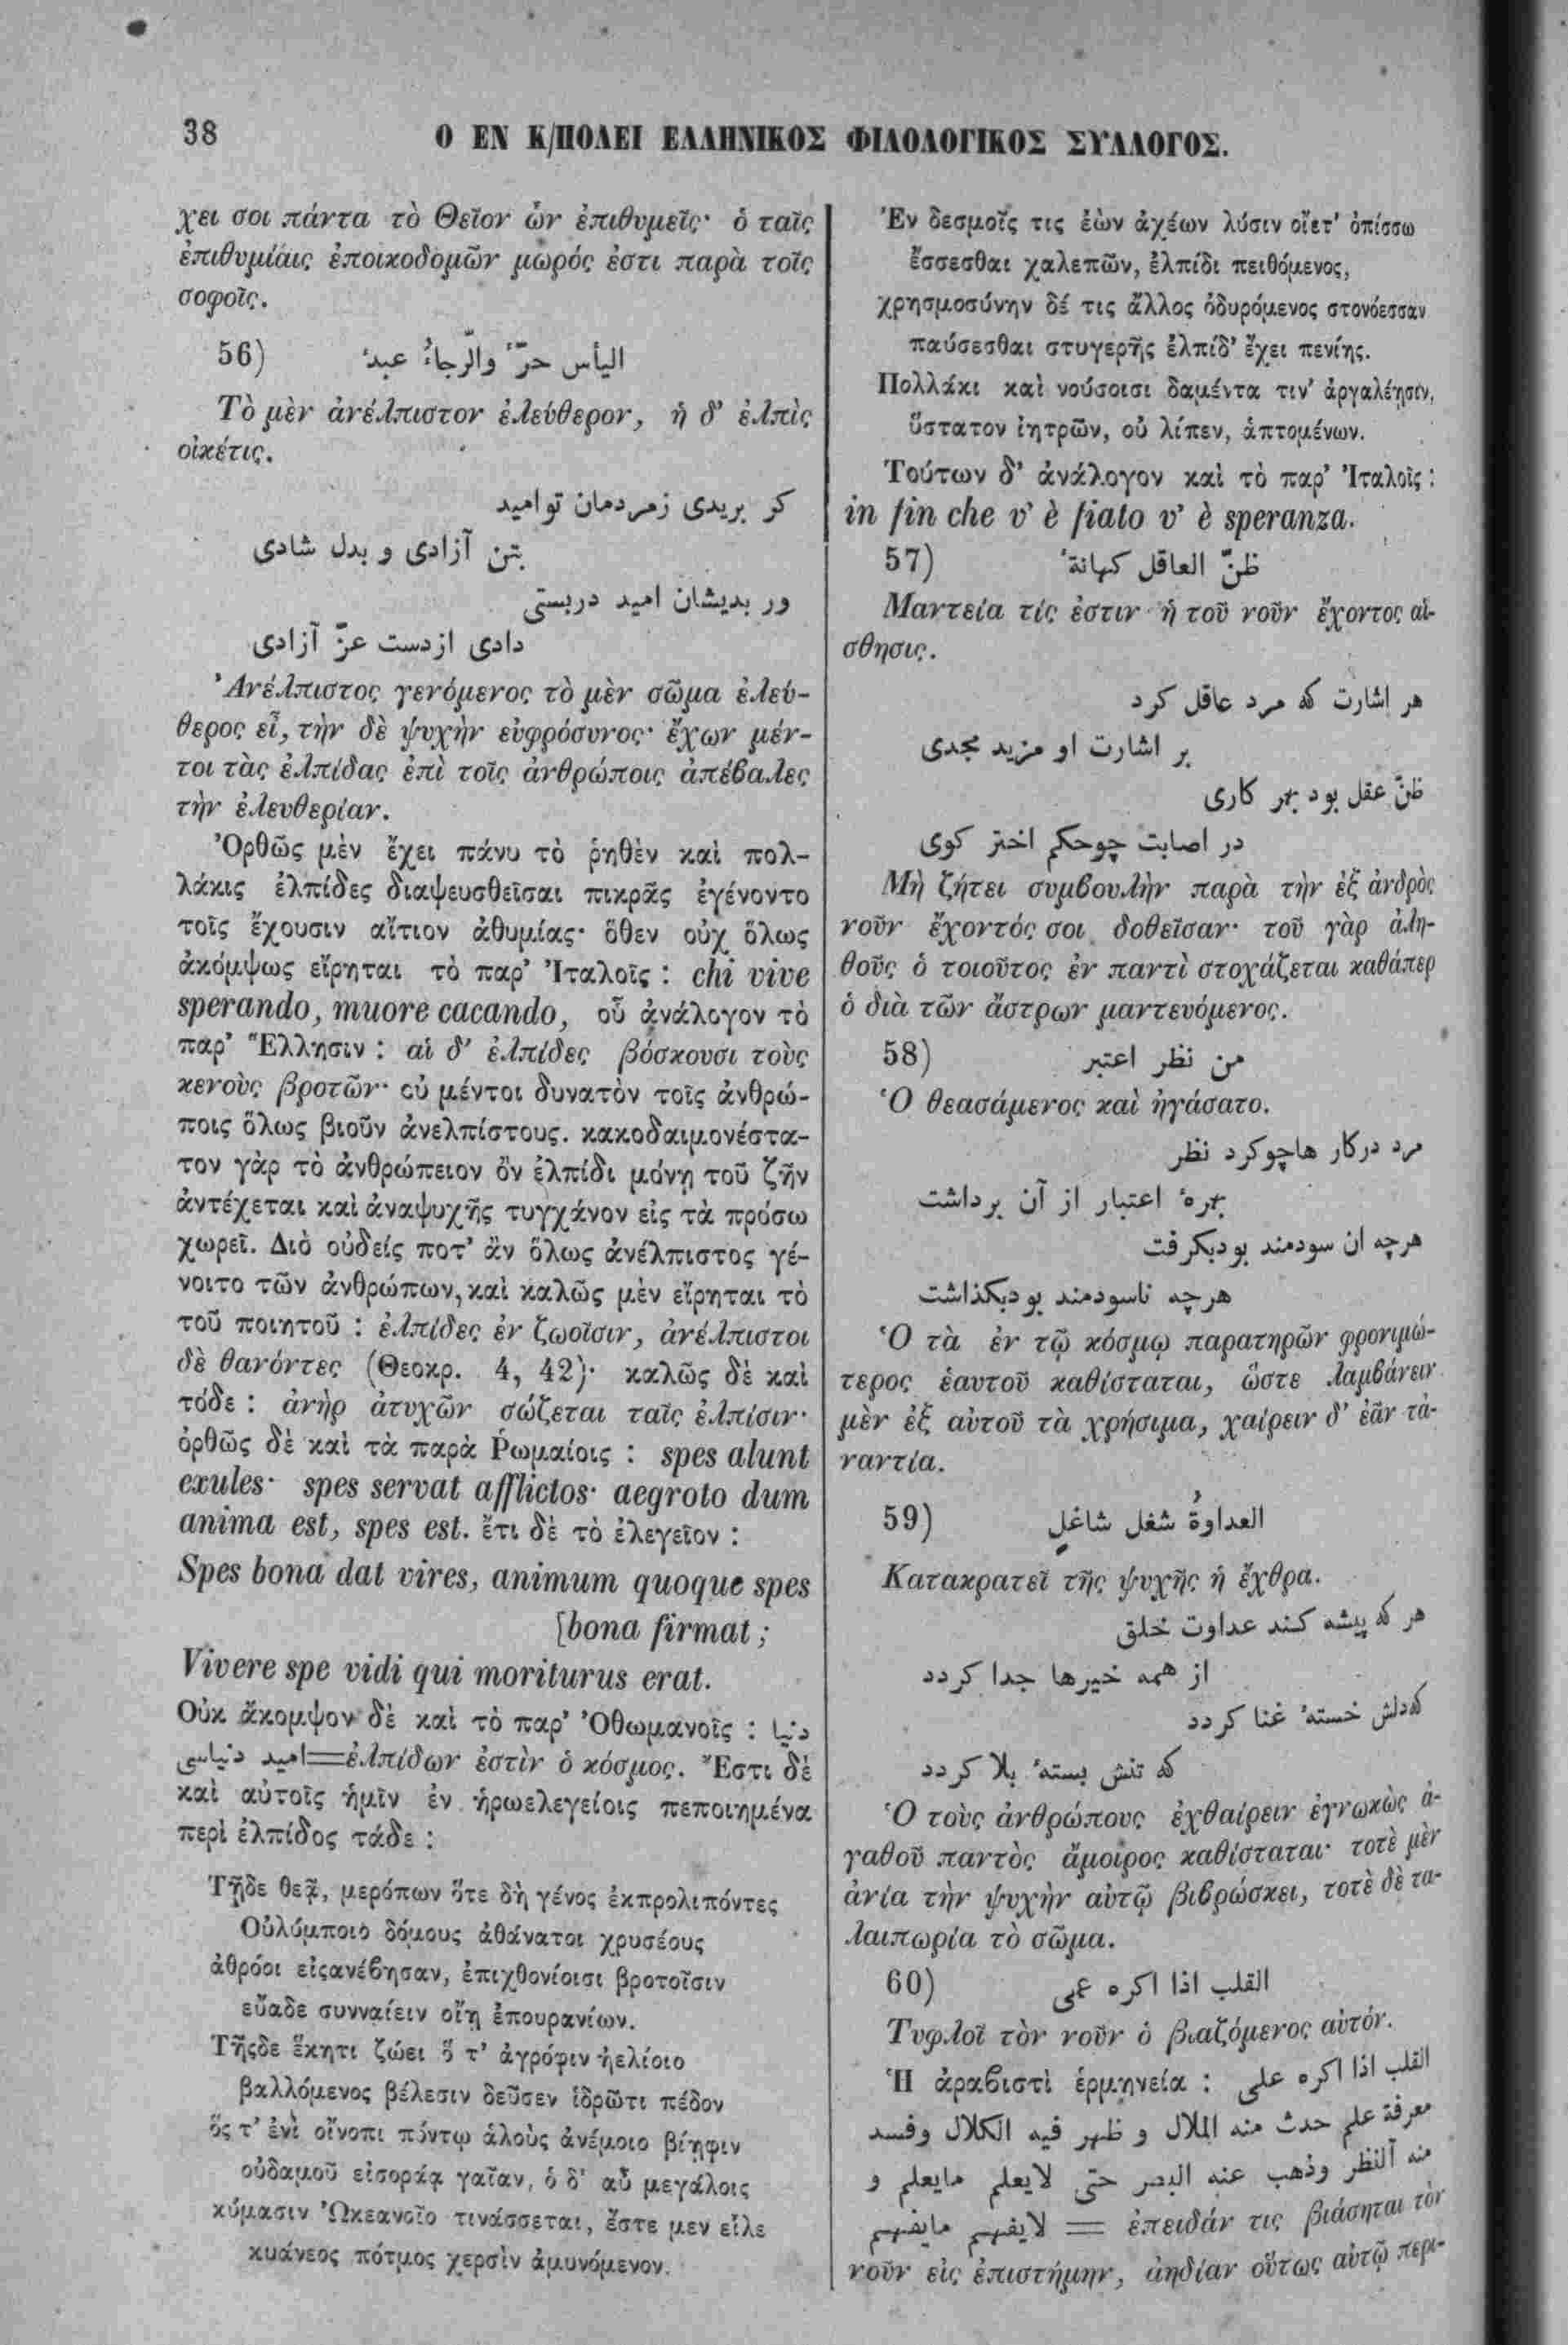 38
Ο ΕΝ Κ/ΠΟΛΕΙ ΕΛΛΗΝΙΚΟΣ ΦΙΛΟΛΟΓΙΚΟΣ ΣΥΛΛΟΓΟΣ.
χει σοι πάντα τὸ Θεῖον ὧν ἐπιθυμεῖς· ὁ ταῖς
ἐπιθυμίαις ἐποικοδομῶν μωρός ἐστι παρὰ τοῖς
σοφοῖς.
56) اليأس حرّ والرّجاءُ عبد
Τὸ μὲν ἀνέλπιστον ἐλεύθερον, ἡ δ' ἐλπὶς
οἰκέτις.
كر بريدى زمردمان تو اميد
بتن آزادى و بدل شادى
ور بديشان اميد دربستى
دادى ازدست عزّ آزادى
Ἀνέλπιστος γενόμενος τὸ μὲν σῶμα ἐλεύ-
θερος εἶ, τὴν δὲ ψυχὴν εὐφρόσυνος· ἔχων μέν-
τοι τὰς ἐλπίδας ἐπὶ τοῖς ἀνθρώποις ἀπέβαλες
τὴν ἐλευθερίαν.
Ὀρθῶς μὲν ἔχει πάνυ τὸ ῥηθὲν καὶ πολ-
λάκις ἐλπίδες διαψευσθεῖσαι πικρᾶς ἐγένοντο
τοῖς ἔχουσιν αἴτιον ἀθυμίας· ὅθεν οὐχ ὅλως
ἀκόμψως εἴρηται τὸ παρ' Ἰταλοῖς : chi vive
sperando, muore cacando, οὗ ἀνάλογον τὸ
παρ' Ἕλλησιν : αἱ δ' ἐλπίδες βόσκουσι τοὺς
κενοὺς βροτῶν· οὐ μέντοι δυνατὸν τοῖς ἀνθρώ-
ποις ὅλως βιοῦν ἀνελπίστους. κακοδαιμονέστα-
τον γὰρ τὸ ἀνθρώπειον ὂν ἐλπίδι μόνῃ τοῦ ζῆν
ἀντέχεται καὶ ἀναψυχῆς τυγχάνον εἰς τὰ πρόσω
χωρεῖ. Διὸ οὐδείς ποτ' ἂν ὅλως ἀνέλπιστος γέ-
νοιτο τῶν ἀνθρώπων, καὶ καλῶς μὲν εἴρηται τὸ
τοῦ ποιητοῦ : ἐλπίδες ἐν ζωοῖσιν, ἀνέλπιστοι
δὲ θανόντες (Θεοκρ. 4, 42)· καλῶς δὲ καὶ
τόδε : ἀνὴρ ἀτυχῶν σώζεται ταῖς ἐλπίσιν·
ὀρθῶς δὲ καὶ τὰ παρὰ Ῥωμαίοις : spes alunt
exules· spes servat afflictos· aegroto dum
anima est, spes est. ἔτι δὲ τὸ ἐλεγεῖον :
Spes bona dat vires, animum quoque spes
[bona firmat ;
Vivere spe vidi qui moriturus erat.
Οὐκ ἄκομψον δὲ καὶ τὸ παρ' Ὀθωμανοῖς : دنيا
اميد دنياسى=ἐλπίδων ἐστὶν ὁ κόσμος. Ἔστι δὲ
καὶ αὐτοῖς ἡμῖν ἐν ἡρωελεγείοις πεποιημένα
περὶ ἐλπίδος τάδε :
Τῇδε θεᾷ, μερόπων ὅτε δὴ γένος ἐκπρολιπόντες
Οὐλύμποιο δόμους ἀθάνατοι χρυσέους
ἀθρόοι εἰςανέβησαν, ἐπιχθονίοισι βροτοῖσιν
εὔαδε συνναίειν οἴῃ ἐπουρανίων.
Τῆςδε ἕκητι ζώει ὅ τ' ἀγρόφιν ἠελίοιο
βαλλόμενος βέλεσιν δεῦσεν ἱδρῶτι πέδον
ὅς τ' ἐνὶ οἴνοπι πόντῳ ἁλοὺς ἀνέμοιο βίῃφιν
οὐδαμοῦ εἰσοράᾳ γαῖαν, ὁ δ' αὖ μεγάλοις
κύμασιν Ὠκεανοῖο τινάσσεται, ἔστε μεν εἷλε
κυάνεος πότμος χερσὶν ἀμυνόμενον.
Ἐν δεσμοῖς τις ἐὼν ἀχέων λύσιν οἴετ' ὀπίσσω
ἔσσεσθαι χαλεπῶν, ἐλπίδι πειθόμενος,
χρησμοσύνην δέ τις ἄλλος ὀδυρόμενος στονόεσσαν
παύσεσθαι στυγερῆς ἐλπίδ' ἔχει πενίης.
Πολλάκι καὶ νούσοισι δαμέντα τιν' ἀργαλέῃσιν,
ὕστατον ἰητρῶν, οὐ λίπεν, ἁπτομένων.
Τούτων δ' ἀνάλογον καὶ τὸ παρ' Ἰταλοῖς :
in fin che v' è fiato v' è speranza.
57) ظنّ العاقل كهانة
Μαντεία τίς ἐστιν ἡ τοῦ νοῦν ἔχοντος αἴ-
σθησις.
هر اشارت كه مرد عاقل كرد
بر اشارت او مزيد مجدى
ظنّ عقل بود بهر كارى
در اصابت چوحكم اختر كوى
Μὴ ζήτει συμβουλὴν παρὰ τὴν ἐξ ἀνδρὸς
νοῦν ἔχοντός σοι δοθεῖσαν· τοῦ γὰρ ἀλη-
θοῦς ὁ τοιοῦτος ἐν παντὶ στοχάζεται καθάπερ
ὁ διὰ τῶν ἄστρων μαντευόμενος.
58) من نظر اعتبر
Ὁ θεασάμενος καὶ ἠγάσατο.
مرد دركار هاچوكرد نظر
بهرهٔ اعتبار از آن برداشت
هرچه ان سودمند بودبكرفت
هرچه ناسودمند بودبكذاشت
Ὁ τὰ ἐν τῷ κόσμῳ παρατηρῶν φρονιμώ-
τερος ἑαυτοῦ καθίσταται, ὥστε λαμβάνειν
μὲν ἐξ αὐτοῦ τὰ χρήσιμα, χαίρειν δ' ἐᾶν τἀ-
ναντία.
59) العداوةُ شغل شاغل
Κατακρατεῖ τῆς ψυχῆς ἡ ἔχθρα.
هر كه پيشه كند عداوت خلق
از همه خيرها جدا كردد
كه دلش خستهٔ غنا كردد
كه تنش بستهٔ بلا كردد
Ὁ τοὺς ἀνθρώπους ἐχθαίρειν ἐγνωκὼς ἀ-
γαθοῦ παντὸς ἄμοιρος καθίσταται· τοτὲ μὲν
ἀνία τὴν ψυχὴν αὐτῷ βιβρώσκει, τοτὲ δὲ τα-
λαιπωρία τὸ σῶμα.
60) القلب اذا اكره عمى
Τυφλοῖ τὸν νοῦν ὁ βιαζόμενος αὐτόν.
Ἡ ἀραβιστὶ ἑρμηνεία : القلب اذا اكره على
معرفة علم حدث منه الملال و ظهر فيه الكلال وفسد
منه النظر وذهب عنه البصر حتى لايعلم مايعلم و
لايفهم مايفهم = ἐπειδάν τις βιάσηται τὸν
νοῦν εἰς ἐπιστήμην, ἀηδίαν οὕτως αὐτῷ περι-